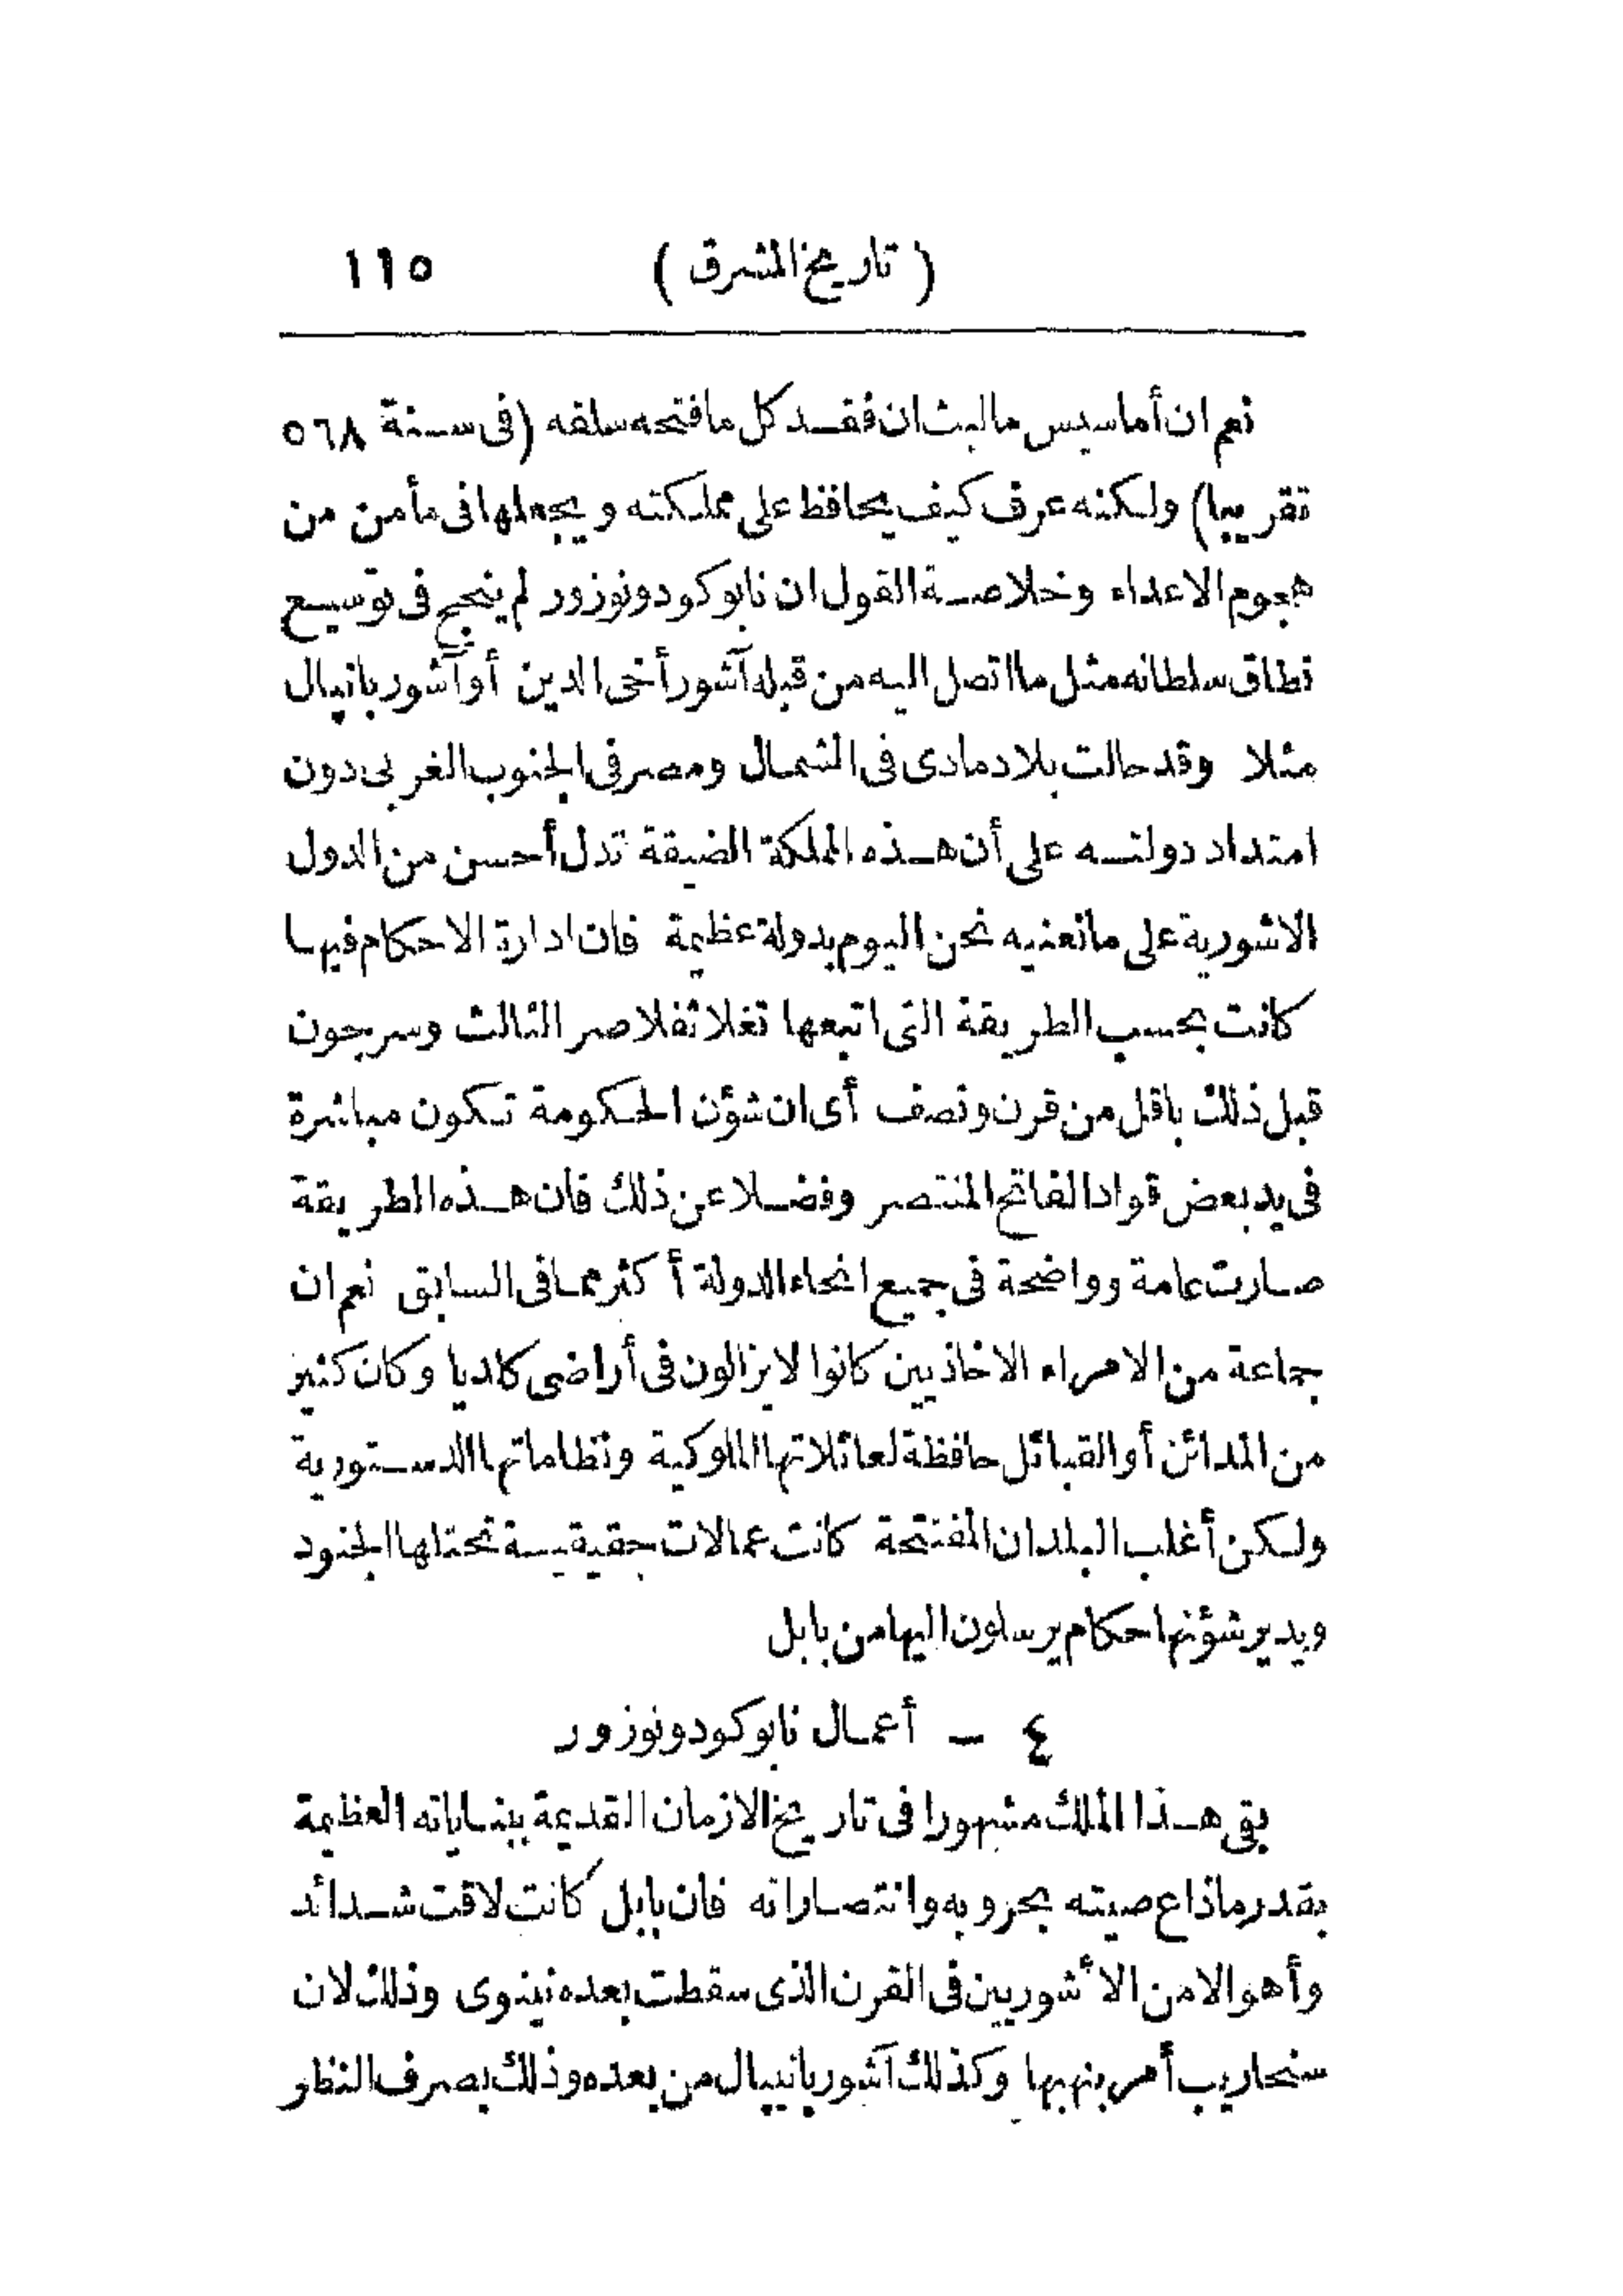 ( تاريخ المشرق ) ١١٥
نعم ان أماسيس مالبث ان فقد كل ما فتحه سلفه (فى سنة ٥٦٨
تقريبا) ولكنه عرف كيف يحافظ على مملكته ويجعلها فى مأمن من
هجوم الاعداء وخلاصة القول ان نابوكودونوزور لم ينجح فى توسيع
نطاق سلطانه مثل ما اتصل اليه من قبله آشور أخى الدين أو آشور بانيبال
مثلا وقد حالت بلاد مادى فى الشمال ومصر فى الجنوب الغربى دون
امتداد دولته على أن هذه المملكة الضيقة تدل أحسن من الدول
الاشورية على مانعنيه نحن اليوم بدولة عظيمة فان ادارة الاحكام فيها
كانت بحسب الطريقة التى اتبعها تغلاثفلاصر الثالث وسرجون
قبل ذلك باقل من قرن ونصف أى ان شؤن الحكومة تكون مباشرة
فى يد بعض قواد الفاتح المنتصر وفضلا عن ذلك فان هذه الطريقة
صارت عامة وواضحة فى جميع انحاء الدولة أكثر مما فى السابق نعم ان
جماعة من الامراء الاخاذيين كانوا لايزالون فى أراضى كلديا وكان كثير
من المدائن أو القبائل حافظة لعائلاتها الملوكية ونظاماتها الدستورية
ولكن أغلب البلدان المفتتحة كانت عمالات حقيقية تحتلها الجنود
ويدير شؤنها حكام يرسلون اليها من بابل
٤ – أعمال نابوكودونوزور
بقى هذا الملك مشهورا فى تاريخ الازمان القديمة ببناياته العظيمة
بقدر ماذاع صيته بحروبه وانتصاراته فان بابل كانت لاقت شدائد
وأهوالا من الأشوريين فى القرن الذى سقطت بعده نينوى وذلك لان
سنحاريب أمر بنهبها وكذلك آشور بانيبال من بعده وذلك بصرف النظر